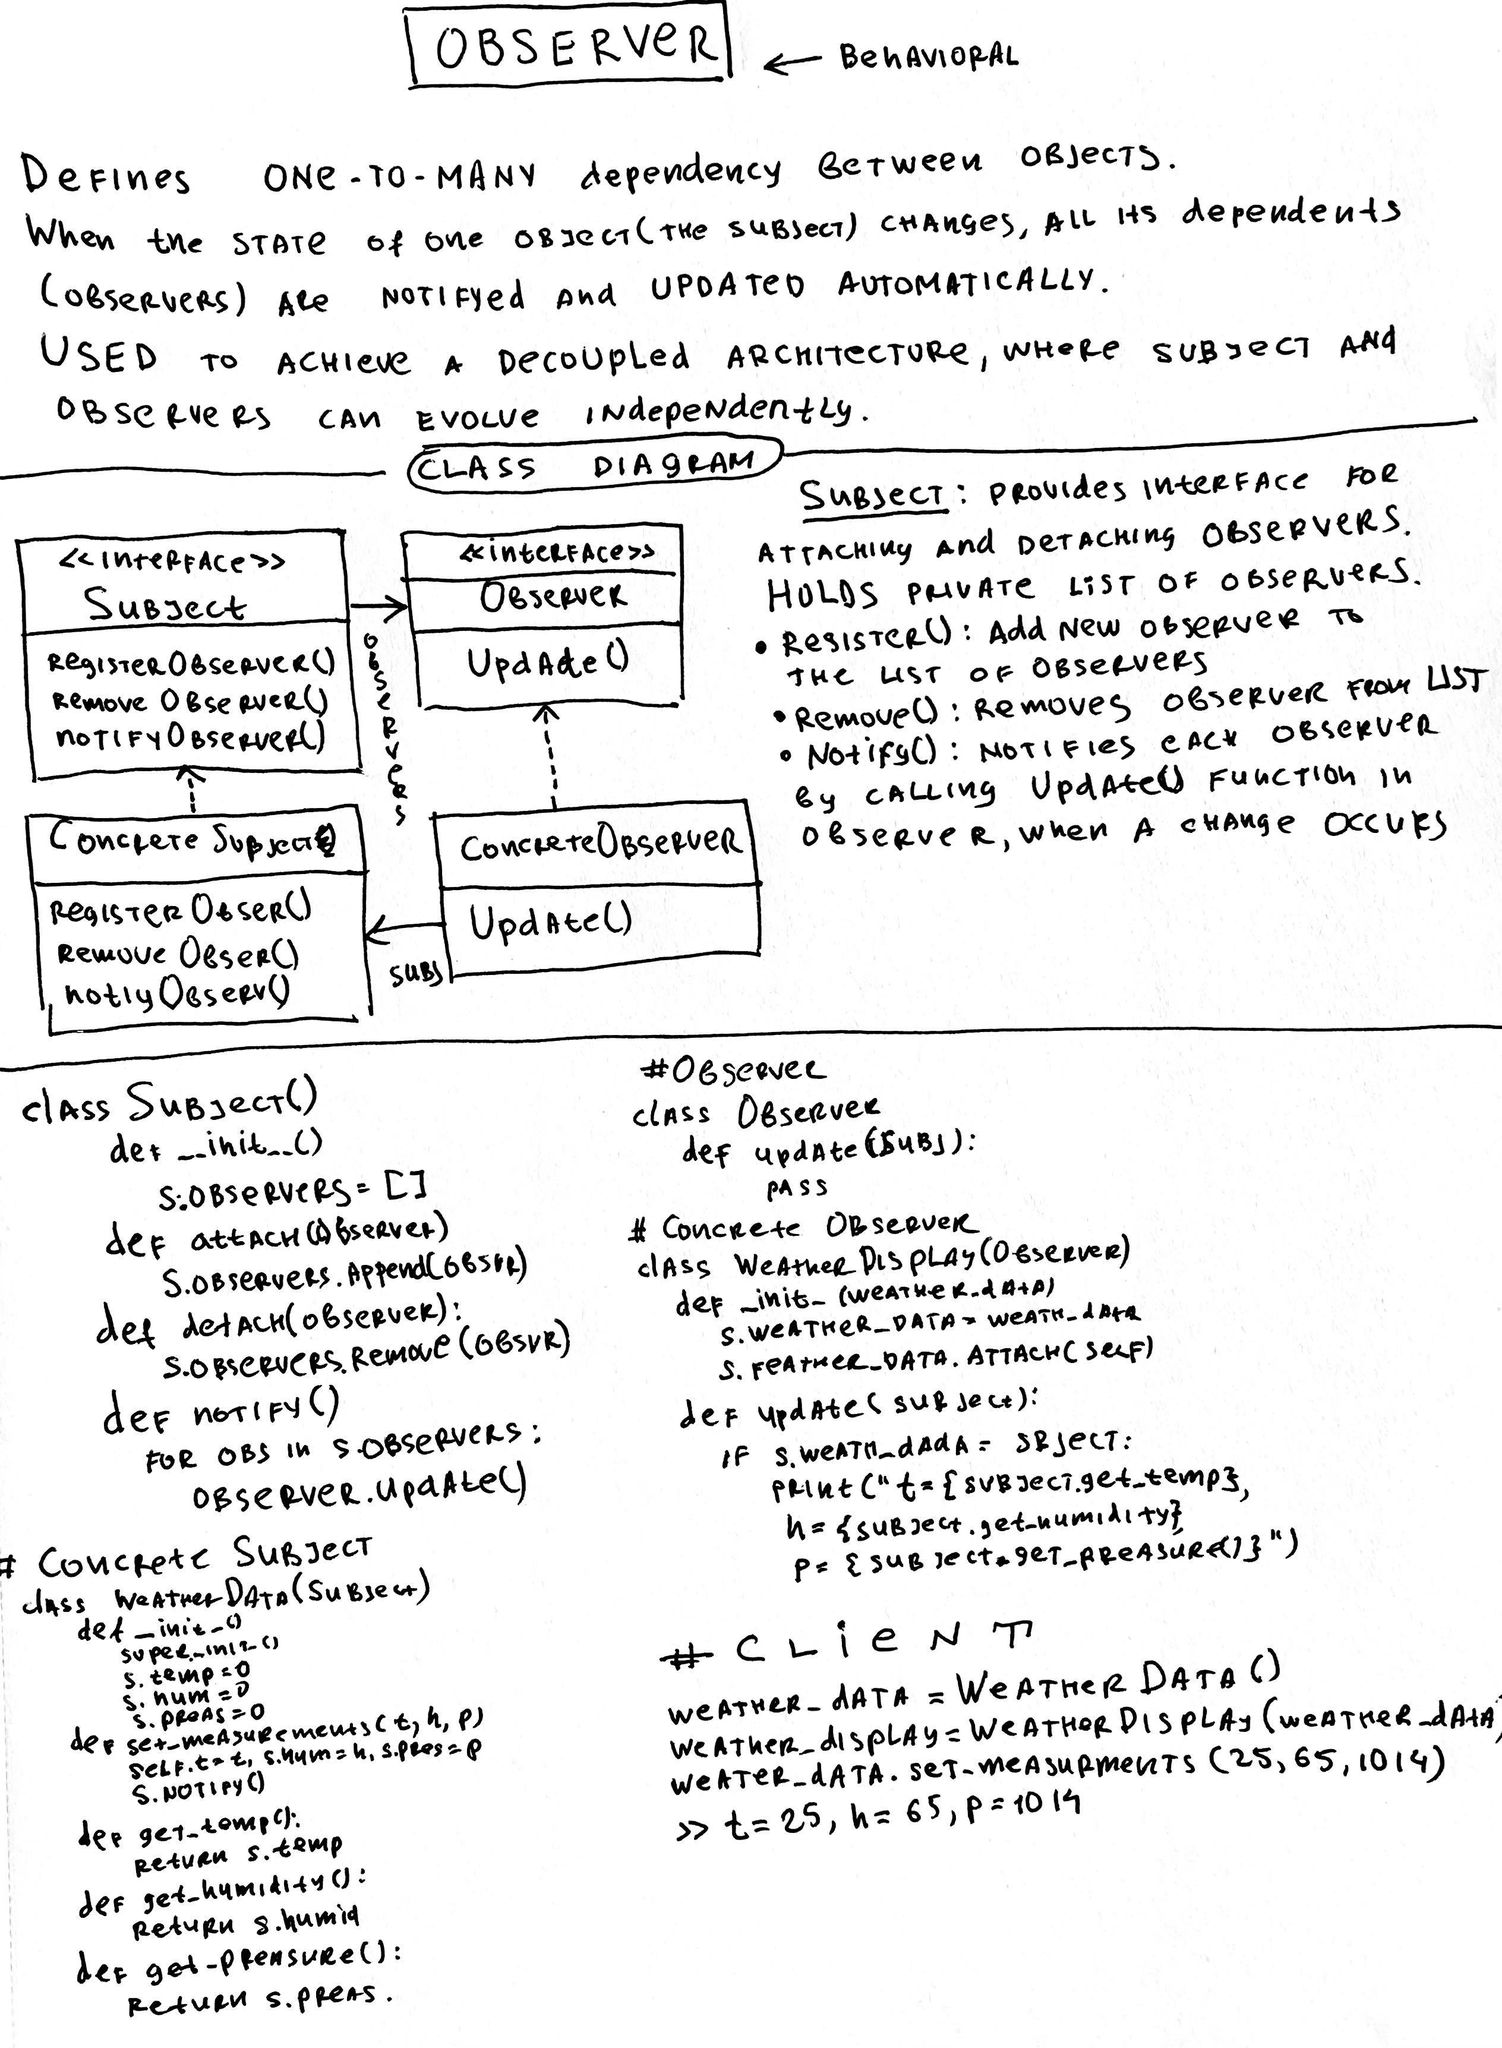 OBSERVER
← BEHAVIORAL
DEFINES ONE-TO-MANY dependency BETWEEN OBJECTS.
WHEN the STATE of one OBJECT (THE SUBJECT) CHANGES, ALL its dependents
(OBSERVERS) ARE NOTIFYed and UPDATED AUTOMATICALLY.
USED TO ACHIEVE A DECOUPLED ARCHITECTURE, WHERE SUBJECT AND
OBSERVERS CAN EVOLVE INdependently.
CLASS DIAGRAM
<<INTERFACE>>
SUBJECT
REGISTEROBSERVER()
REMOVE OBSERVER()
NOTIFYOBSERVER()
OBSERVERS
<<INTERFACE>>
OBSERVER
UpdAte()
CONCRETE SUBJECT
REGISTER OBSER()
REMOVE OBSER()
notiyOBSERV()
SUBJ
CONCRETEOBSERVER
UpdAte()
SUBJECT: PROVIDES INTERFACE FOR
ATTACHING AND DETACHING OBSERVERS.
HOLDS PRIVATE LIST OF OBSERVERS.
• RESISTER(): Add NEW OBSERVER TO
THE LIST OF OBSERVERS
• Remove(): REMOVES OBSERVER FROM LIST
• Notify(): NOTIFIES EACH OBSERVER
By CALLING UpdAte() FUNCTION IN
OBSERVER, WHEN A CHANGE OCCURS
class SUBJECT()
def __init__()
S.OBSERVERS = []
def attACH(OBSERVER)
S.OBSERVERS.Append(OBSVR)
def detACH(OBSERVER):
S.OBSERVERS.Remove(OBSVR)
def NOTIFY()
FOR OBS in S.OBSERVERS:
OBSERVER.UpdAte()
# CONCRETE SUBJECT
class WEATHERDATA(SUBJECT)
def _init_()
super_init_()
s.temp=0
s.hum=0
s.PREAS=0
def set_MEASUREMENTS(t, h, p)
SELF.t=t, s.hum=h, s.pres=p
S.NOTIFY()
def get_temp():
Return s.temp
def get_humidity():
Return s.humid
def get-PREASURE():
Return s.PREAS.
#OBSERVER
class OBSERVER
def updAte(SUBJ):
PASS
# CONCRETE OBSERVER
class WEATHERDISPLAY(OBSERVER)
def _init_(WEATHER_dATA)
S.WEATHER_DATA = WEATH_dATA
S.FEATHER_DATA.ATTACH(SELF)
def updAte(SUBJECT):
IF S.WEATH_dAdA = SBJECT:
PRINT("t={SUBJECT.get_temp},
h={SUBJECT.get_humidity}
P={SUBJECT.GET_PREASURE()}")
# CLIENT
WEATHER_dATA = WEATHER DATA()
WEATHER_dISPLAY = WEATHERDISPLAY(WEATHER_dATA)
WEATER_dATA.SET-MEASURMENTS (25, 65, 1014)
>> t=25, h=65, P=1014